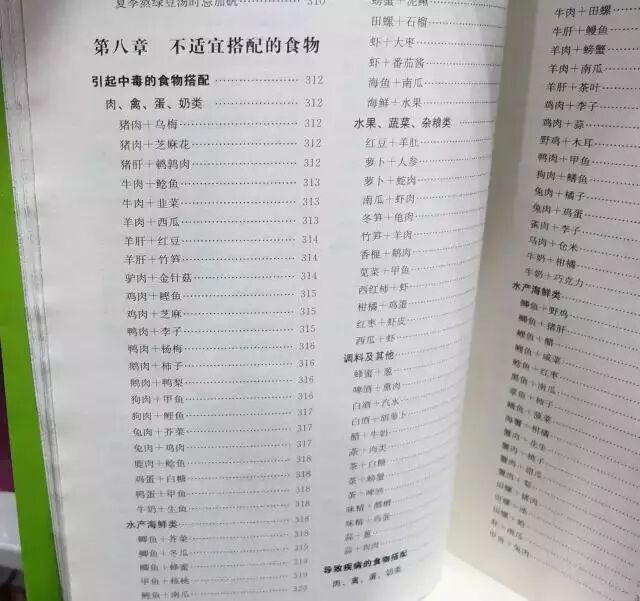 夏季熬绿豆汤时忌加矾 310
第八章 不适宜搭配的食物
引起中毒的食物搭配 312
肉、禽、蛋、奶类 312
猪肉+乌梅 312
猪肉+芝麻花 312
猪肝+鹌鹑肉 312
牛肉+鲶鱼 313
牛肉+韭菜 313
羊肉+西瓜 313
羊肝+红豆 314
羊肝+竹笋 314
驴肉+金针菇 314
鸡肉+鲤鱼 315
鸡肉+芝麻 315
鸭肉+李子 315
鸭肉+杨梅 316
鹅肉+柿子 316
鹅肉+鸭梨 316
狗肉+甲鱼 316
狗肉+鲤鱼 317
兔肉+芥菜 317
兔肉+鸡肉 317
鹿肉+鲶鱼 318
鸡蛋+白糖 318
鸭蛋+甲鱼 318
牛奶+生鱼 318
水产海鲜类 318
鲫鱼+芥菜 318
鲫鱼+冬瓜 319
鲫鱼+蜂蜜 319
甲鱼+核桃 319
鲤鱼+南瓜 320
螃蟹+泥鳅
田螺+石榴
虾+大枣
虾+番茄酱
海鱼+南瓜
海鲜+水果
水果、蔬菜、杂粮类
红豆+羊肚
萝卜+人参
萝卜+蛇肉
南瓜+虾肉
冬笋+龟肉
竹笋+羊肉
香榧+鹅肉
苋菜+甲鱼
西红柿+虾
柑橘+鸡蛋
红枣+虾皮
西瓜+虾
调料及其他
蜂蜜+葱
啤酒+熏肉
白酒+汽水
白酒+胡萝卜
醋+牛奶
茶+肉类
茶+白糖
茶+螃蟹
茶+啤酒
味精+醋
味精+鸡蛋
蒜+葱
蒜+狗肉
导致疾病的食物搭配
肉、禽、蛋、奶类
牛肉+田螺
牛肝+鳗鱼
羊肉+螃蟹
羊肉+南瓜
羊肝+茶叶
鸡肉+李子
鸡肉+蒜
野鸡+木耳
鸭肉+甲鱼
狗肉+鳝鱼
兔肉+橘子
兔肉+鸡蛋
雀肉+李子
马肉+仓米
牛奶+柑橘
牛奶+巧克力
水产海鲜类
鲫鱼+野鸡
鲫鱼+猪肝
鲤鱼+醋
鲤鱼+咸菜
鲶鱼+红枣
黑鱼+南瓜
章鱼+柿子
鳝鱼+菠菜
海蟹+柑橘
蟹肉+花生
蟹肉+桃子
蟹肉+甜瓜
蟹肉+梨
田螺+猪肉
田螺+冰
田螺+蛤
虾+南瓜
甲鱼+兔肉